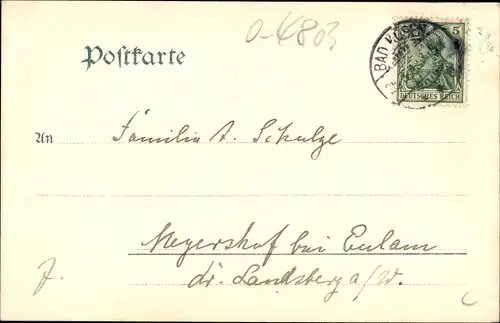 O-4803
Postkarte
BAD KÖSEN
5
DEUTSCHES REICH
An Familie A. Schulze
Meyershof bei Eulam
Kr. Landsberg a/W.